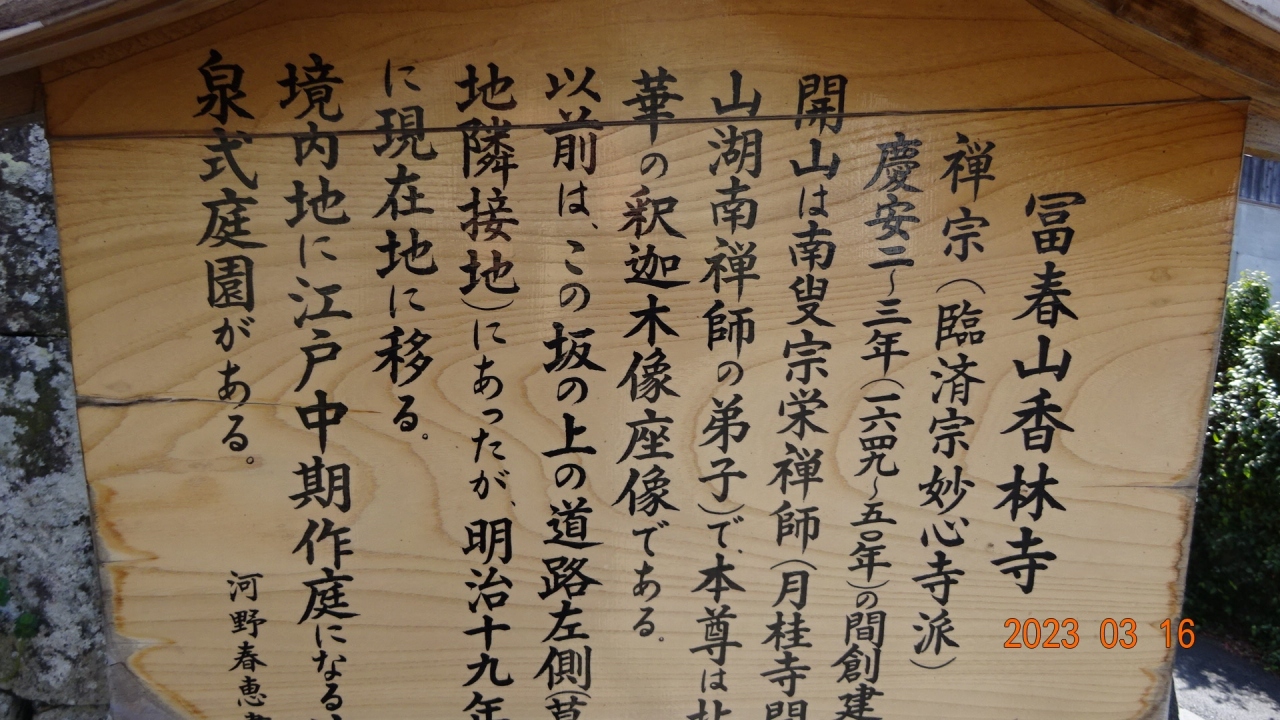 冨春山香林寺
禅宗(臨済宗妙心寺派)
慶安二~三年(一六四九~五〇年)の間創建
開山は南叟宗栄禅師(月桂寺開
山湖南禅師の弟子)で、本尊は
華の釈迦木像座像である。
以前は、この坂の上の道路左側(
地隣接地)にあったが、明治十九年
に現在地に移る。
境内地に江戸中期作庭になる
泉式庭園がある。
河野春恵
2023 03 16